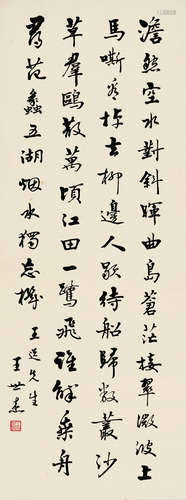 澹然空水對斜暉曲島蒼茫接翠微波上
馬嘶看棹去柳邊人歇待船歸數叢沙
草羣鷗散萬頃江田一鷺飛誰解乘舟
尋范蠡五湖烟水獨忘機
先生
王世杰